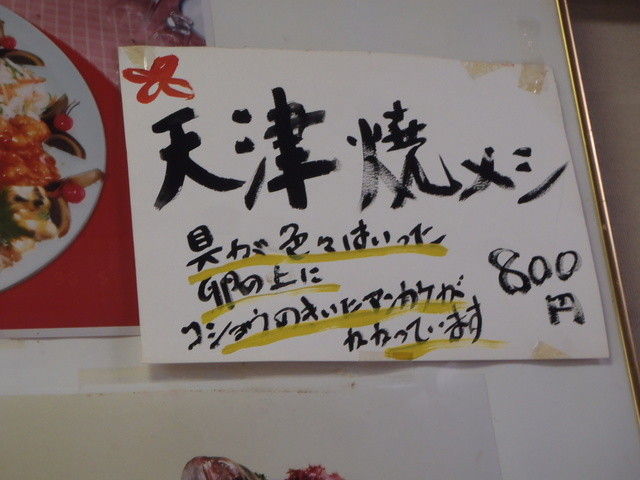 天津焼メシ
具が色々はいった
卵の上に
コショウのきいたアンカケが
カカっています
800
円